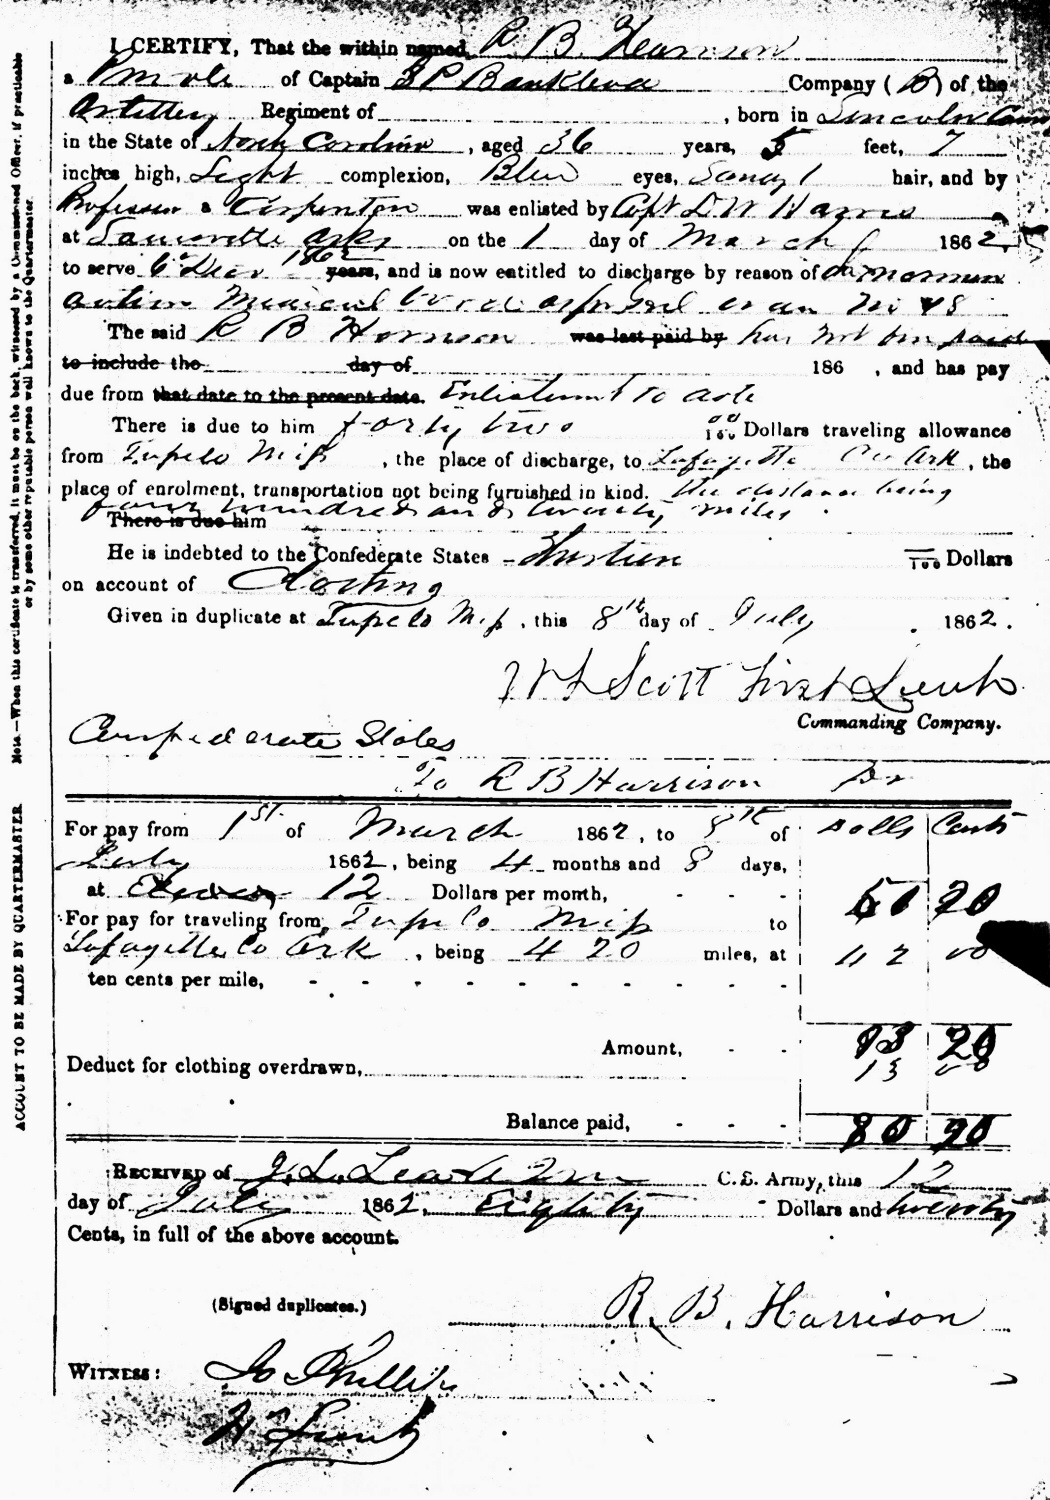 I CERTIFY, That the within named R. B. Harrison
a Private of Captain Company (B) of the
Artillery Regiment of , born in Lincoln
in the State of North Carolina , aged 36 years, 5 feet, 7
inches high, Light complexion, Blue eyes, Sandy hair, and by
Profession a Carpenter was enlisted by Capt D W Harris
at Arks on the 1 day of March 1862,
to serve 1862 years, and is now entitled to discharge by reason of
No 48
The said R B Harrison was last paid by has not been paid
to include the day of 186 , and has pay
due from that date to the present date. Enlistment to date
There is due to him forty two 00/100 Dollars traveling allowance
from Tupelo Miss , the place of discharge, to Lafayette Co Ark , the
place of enrolment, transportation not being furnished in kind. the distance being
four hundred and twenty miles
There is due him
He is indebted to the Confederate States Thirteen /100 Dollars
on account of Clothing
Given in duplicate at Tupelo Miss , this 8th day of July . 1862 .
Scott First Lieut
Commanding Company.
Confederate States
To R B Harrison Dr
For pay from 1st of March 1862 , to 8th of Dolls Cents
July 1862 , being 4 months and 8 days,
at 12 Dollars per month, - - - 51 20
For pay for traveling from, Tupelo Miss to
Lafayette Co Ark , being 420 miles, at 42 00
ten cents per mile, - - - - - - - - -
Amount, - - 93 20
Deduct for clothing overdrawn, 13 00
Balance paid, - - - 80 20
RECEIVED of C.S. Army, this 12
day of July 1862, Eighty Dollars and twenty
Cents, in full of the above account.
(Signed duplicates.) R. B. Harrison
WITNESS: Jo Phillips
Lieut
Note.—When this certificate is transferred, it must be on the back, witnessed by a Commissioned Officer, if practicable
or by some other reputable person well known to the Quartermaster.
ACCOUNT TO BE MADE BY QUARTERMASTER